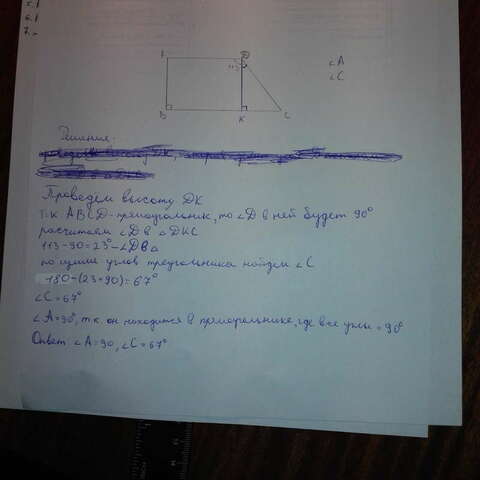 5.1
6.1
7.
D
∠A
∠C
B
K
C
Решение:
Проведем высоту DK
т.к ABCD-прямоугольник, то ∠D в ней будет 90°
расчитаем ∠D в △DKC
113-90=23°-∠D в △
по сумме углов треугольника найдем ∠C
180-(23+90)=67°
∠C=67°
∠A=90°, т.к он находится в прямоугольнике, где все углы = 90°
Ответ ∠A=90, ∠C=67°